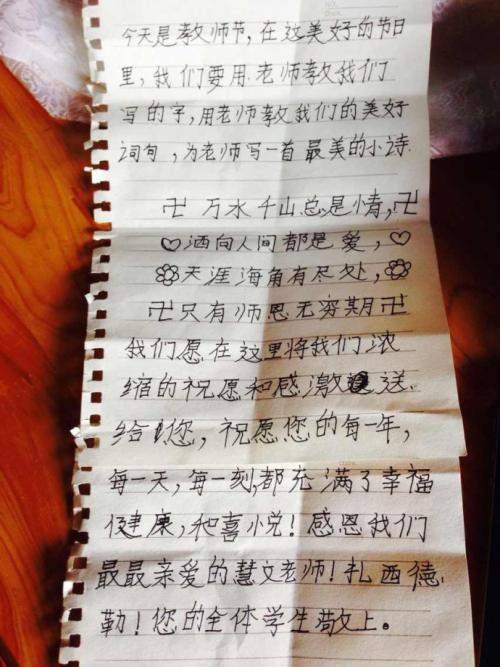 今天是教师节,在这美好的节日
里,我们要用老师教我们
写的字,用老师教我们的美好
词句,为老师写一首最美的小诗.
卍 万水千山总是情,卍
♡洒向人间都是爱,♡
天涯海角有尽处,
卍只有师恩无穷期卍
我们愿在这里将我们浓
缩的祝愿和感激送
给您,祝愿您的每一年,
每一天,每一刻,都充满了幸福
健康,和喜悦!感恩我们
最最亲爱的慧文老师!扎西德
勒!您的全体学生敬上。